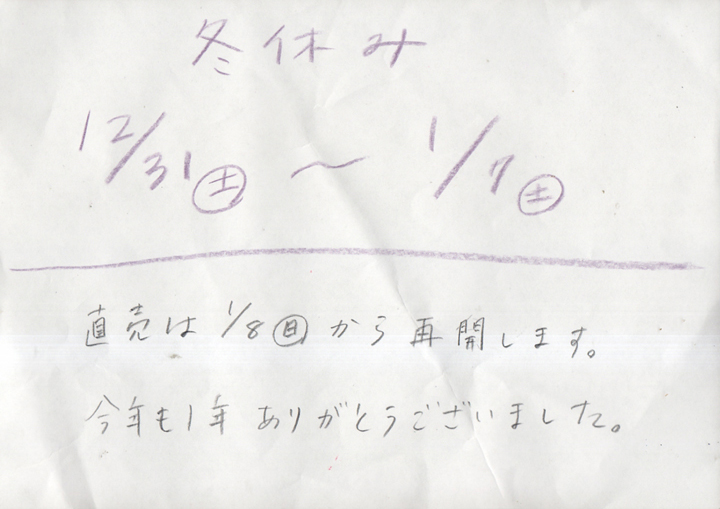 冬休み
12/31㊏ ～ 1/7㊏
直売は 1/8㊐ から 再開します。
今年も1年 ありがとうございました。